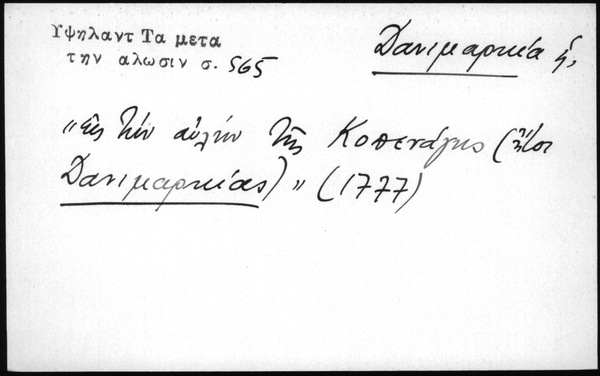 Υψηλαντ Τα μετα
την αλωσιν σ. 565
Δανιμαρκία ἡ,
"εἰς τὴν αὐλὴν τῆς Κοπενάγης (ἤτοι
Δανιμαρκίας)" (1777)